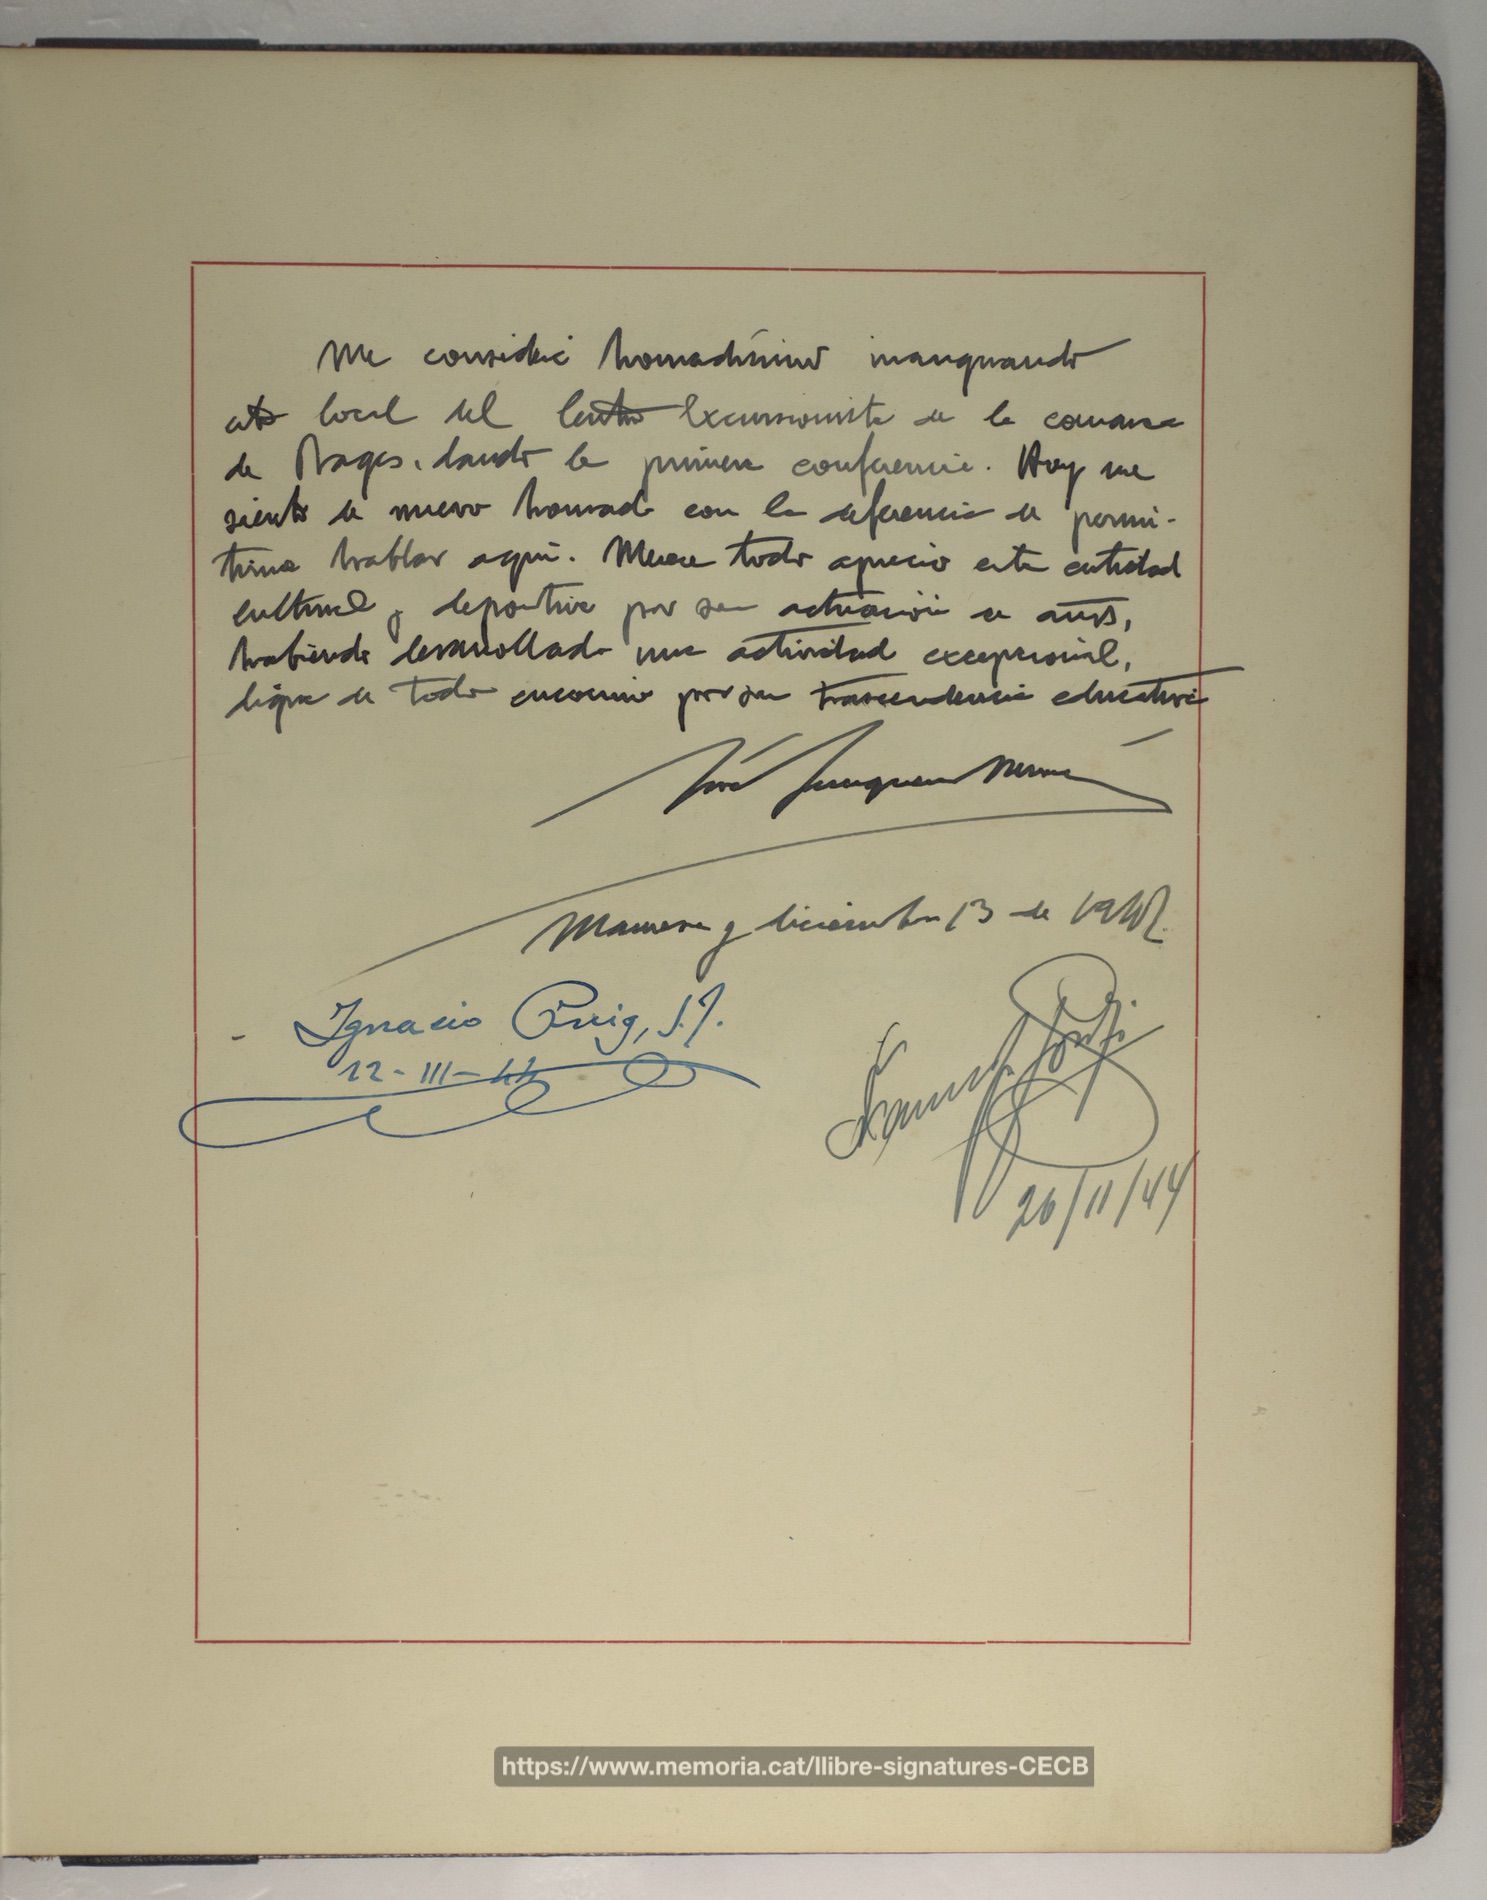 Me consideré honradísimo inaugurando
este local del Centro Excursionista de la comarca
de Bages, dando la primera conferencia. Hoy me
siento de nuevo honrado con la deferencia de permi-
tirme hablar aquí. Merece todo aprecio esta entidad
cultural y deportiva por su actuación de años,
habiendo desarrollado una actividad excepcional,
digna de todo encomio por su trascendencia educativa
José
Manresa y diciembre 13 de 1947.
Ignacio Puig, S.J.
12-III-44
26/11/44
https://www.memoria.cat/llibre-signatures-CECB